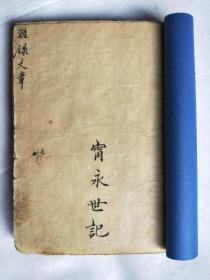 雜錄文章
甯永世記